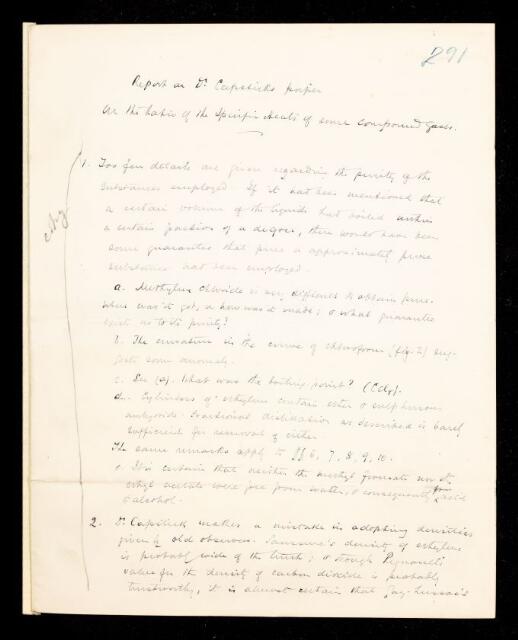 291
Report on Dr. Capstick's paper
On the Ratio of the Specific Heats of some Compound Gases.
1. Too few details are given regarding the purity of the
substances employed. If it had been mentioned that
a certain volume of the liquids had boiled within
a certain fraction of a degree, there would have been
some guarantee that pure or approximately pure
substances had been employed.
a. Methylene chloride is very difficult to obtain pure.
Where was it got, or how was it made; & what guarantee
exists as to its purity?
b. The curvature in the curve of chloroform (fig. 2) sug-
gests some anomaly.
c. See (a). What was the boiling-point? (CCl4).
d. Cylinders of ethylene contain ether & sulphurous
anhydride. Fractional distillation as described is barely
sufficient for removal of either.
The same remarks apply to §§ 6, 7, 8, 9, 10.
e. It is certain that neither the methyl formate nor the
ethyl acetate were free from water, & consequently from acid
& alcohol.
2. Dr. Capstick makes a mistake in adopting densities
given by old observers. Saussure's density of ethylene
is probably wide of the truth; & though Regnault's
value for the density of carbon dioxide is probably
trustworthy, it is almost certain that Gay-Lussac's